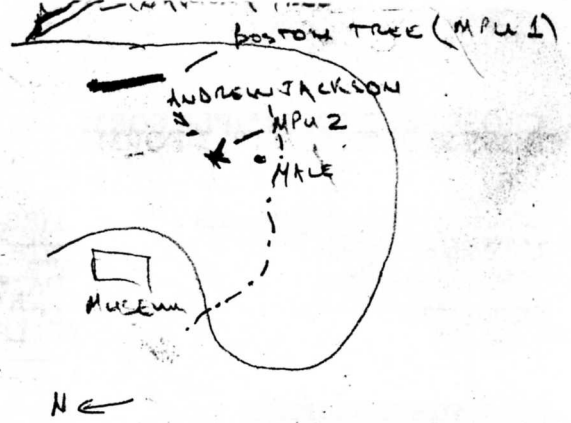 TREE
BOSTON TREE (MPU 1)
ANDREW JACKSON
MPU 2
MALE
MUSEUM
N